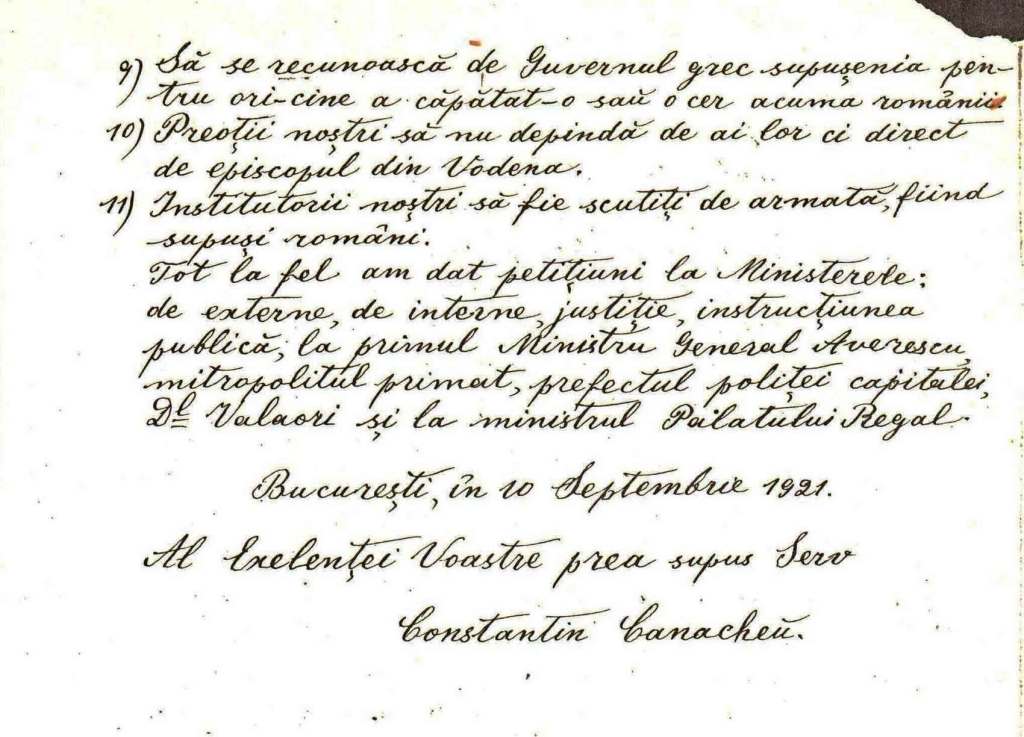 9) Să se recunoască de Guvernul grec supușenia pen-
tru ori-cine a căpătat-o saŭ o cer acuma românii.
10) Preoții noștri să nu depindă de ai lor ci direct
de episcopul din Vodena.
11) Institutorii noștri să fie scutiți de armată, fiind
supuși români.
Tot la fel am dat petițiuni la Ministerele:
de externe, de interne, justiție, instrucțiunea
publică, la primul Ministru General Averescu,
mitropolitul primat, prefectul poliței capitalei,
Dl Valaori și la ministrul Palatului Regal.
București, în 10 Septembrie 1921.
Al Exelenței Voastre prea supus Serv
Constantin Canacheŭ.